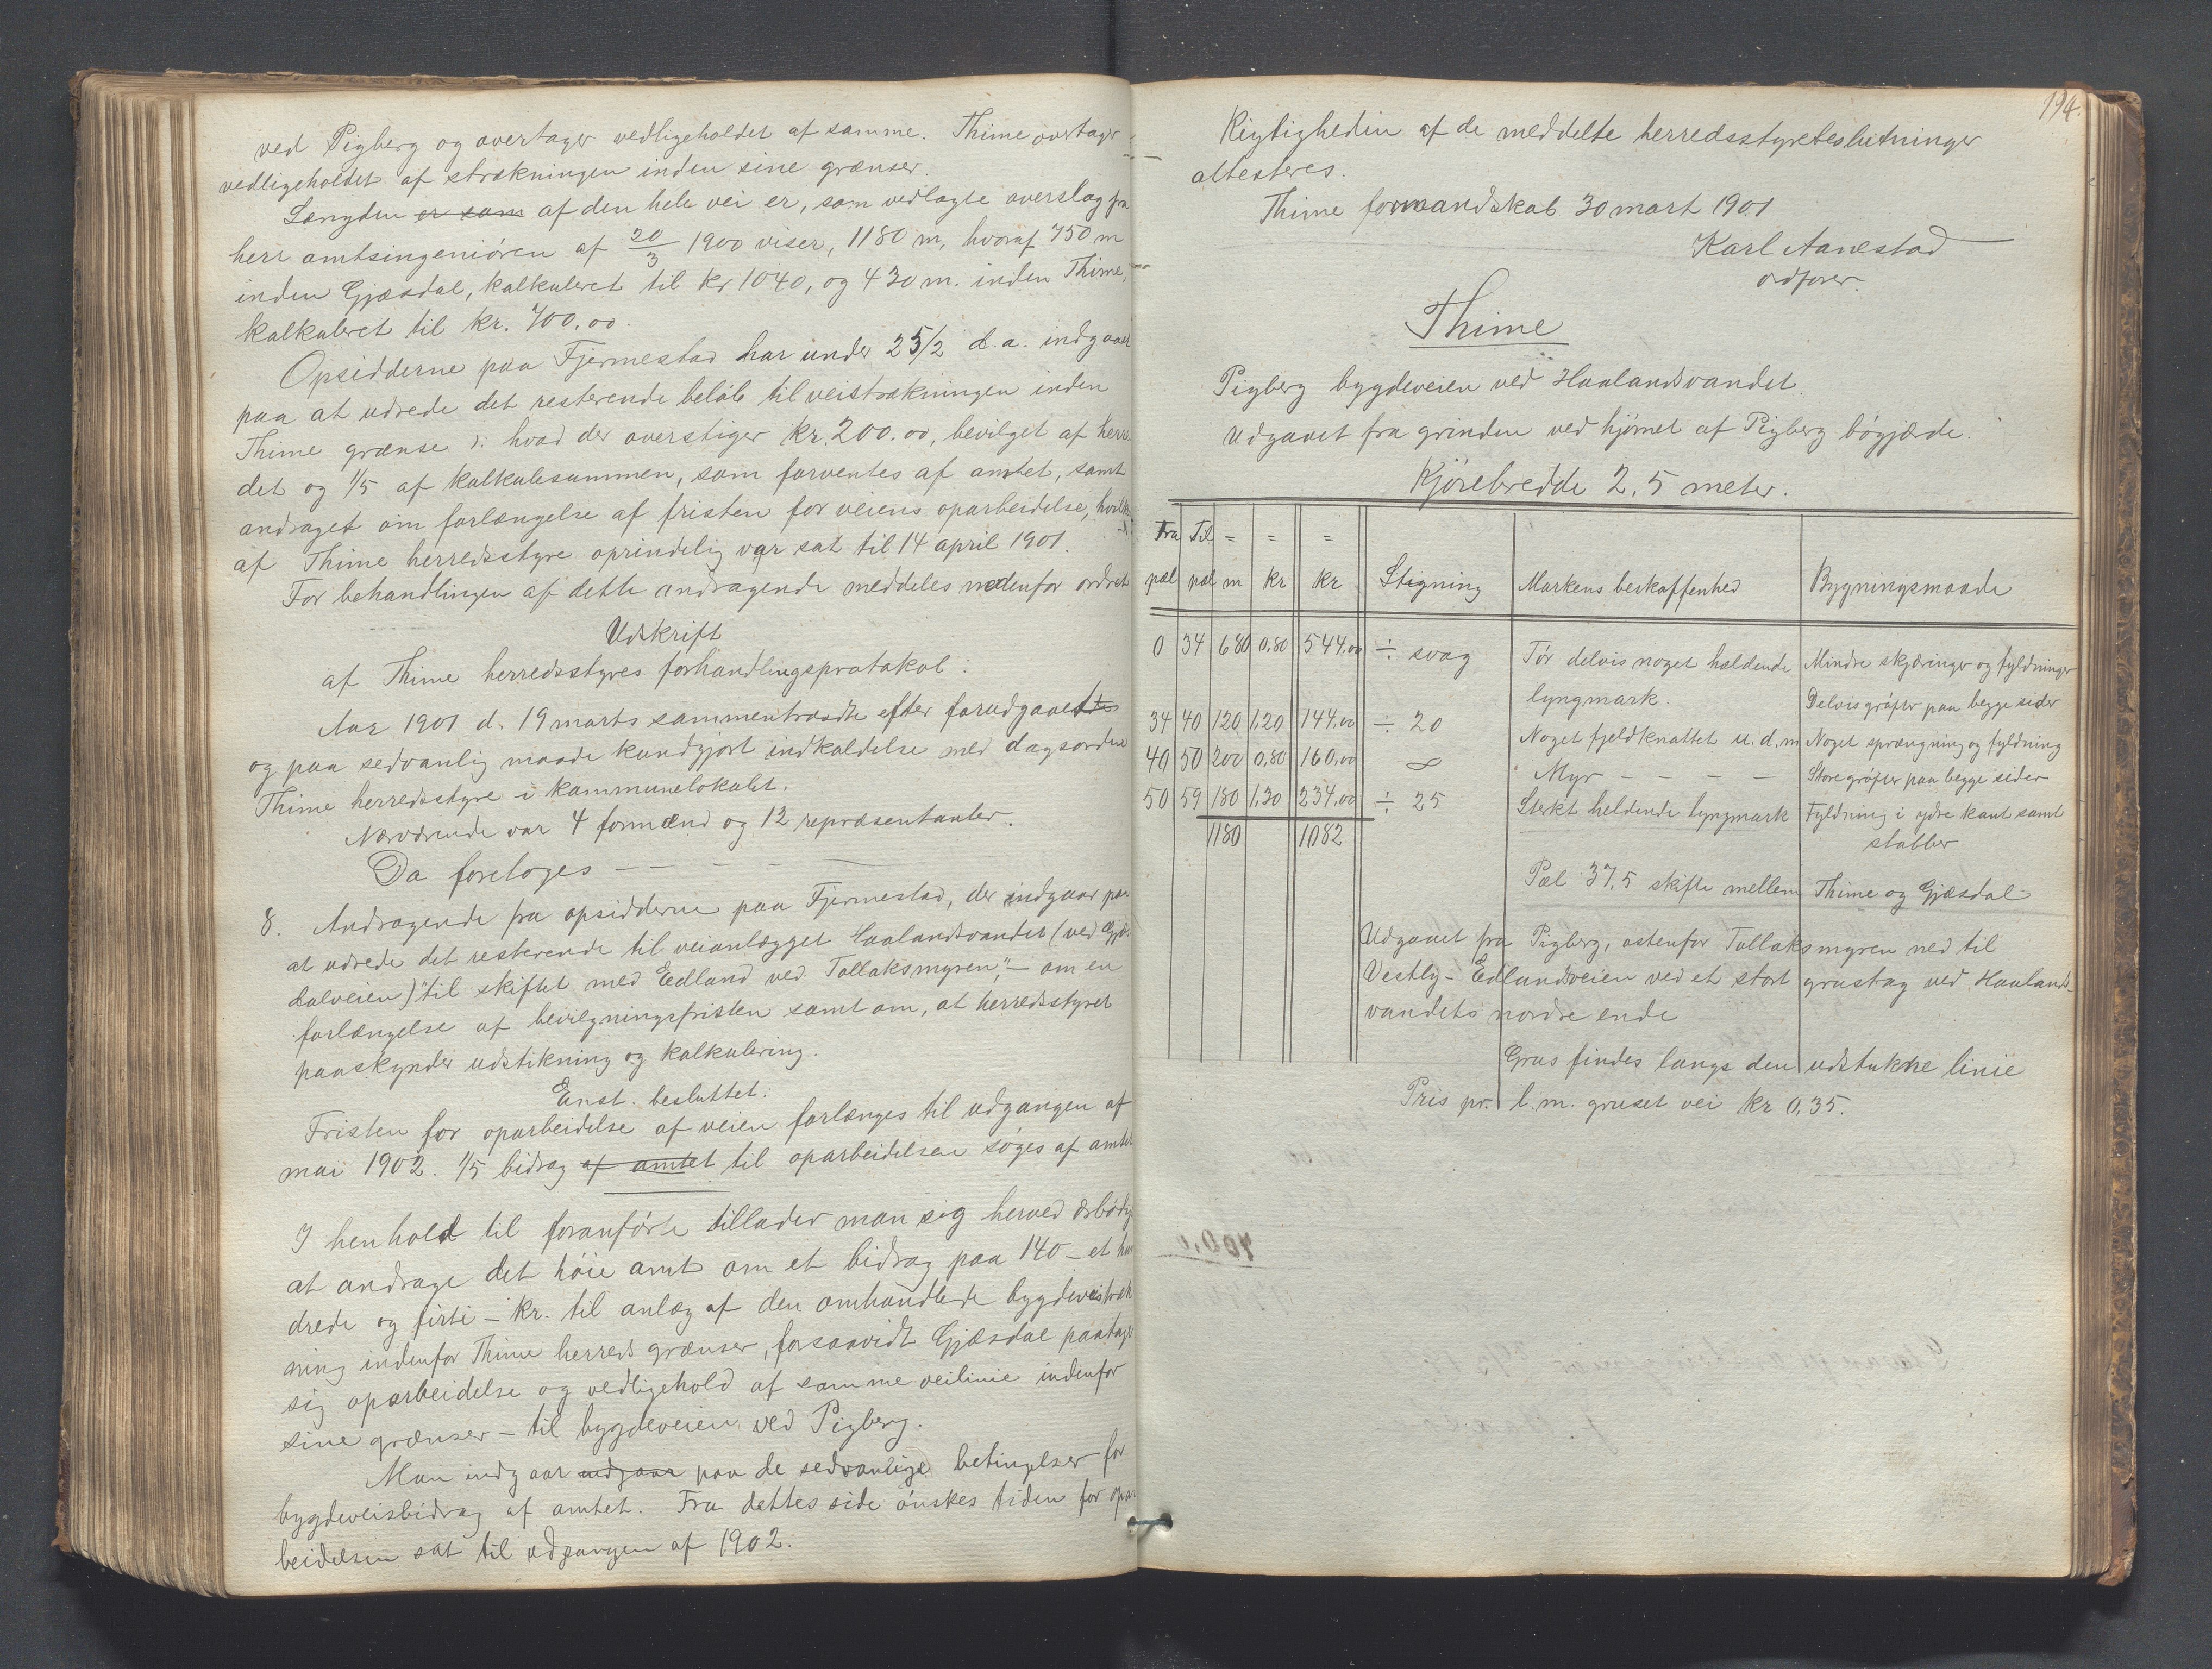 ved Pigberg og overtager vedligeholdet af samme. Thime overtager
vedligeholdet af strækningen inden sine grænser.
Længden er som af den hele vei er, som vedlagte overslag fra
herr amtsingeniören af 20/3 1900 viser, 1180 m, hvoraf 750 m
inden Gjæsdal, kalkuleret til kr 1040, og 430 m. inden Thime,
kalkuleret til kr. 700,00.
Opsidderne paa Fjermestad har under 25/2 d.a. indgaaet
paa at udrede det resterende belöb til veistrækningen inden
Thime grænse ɔ: hvad der overstiger kr. 200.00, bevilget af herre
det og 1/5 af kalkulesummen, som forventes af amtet, samt
andraget om forlængelse af fristen for veiens oparbeidelse, hvilken
af Thime herredsstyre oprindelig var sat til 14 april 1901.
For behandlingen af dette andragende meddeles nedenfor ordret
Udskrift
af Thime herredsstyres forhandlingsprotokol:
Aar 1901 d. 19 marts sammentraadte efter forudgaaet
og paa sedvanlig maade kundgjort indkaldelse med dagsorden
Thime herredsstyre i kommunelokalet.
Nærværende var 4 formænd og 12 repræsentanter.
Da foretoges — — —
8. Andragende fra opsidderne paa Fjermestad, der indgaar paa
at udrede det resterende til veianlægget Haalandsvandet (ved Gjæs-
dalveien) "til skiftet med Eedland ved Tollaksmyren," — om en
forlængelse af bevilgningsfristen samt om, at herredsstyret
paaskynder udstikning og kalkulering.
Enst. besluttet:
Fristen for oparbeidelse af veien forlænges til udgangen af
mai 1902. 1/5 bidrag af amtet til oparbeidelsen söges af amtet
I henhold til foranförte tillader man sig herved ærbödig
at andrage det höie amt om et bidrag paa 140 – et hun
drede og firti – kr. til anlæg af den omhandlede bygdeveistræk
ning indenfor Thime herreds grænser, forsaavidt Gjæsdal paatager
sig oparbeidelse og vedligehold af samme veilinie indenfor
sine grænser – til bygdeveien ved Pigberg.
Man indgaar udgaar paa de sedvanlige betingelser for
bygdeveisbidrag af amtet. Fra dettes side önskes tiden for opar
beidelsen sat til udgangen af 1902.
194.
Rigtigheden af de meddelte herredsstyrebeslutninger
attesteres.
Thime formandskab 30 mart 1901
Karl Aanestad
ordförer.
Thime
Pigberg bygdeveien ved Haalandsvandet.
Udgaaet fra grinden ved hjörnet af Pigberg bögjærde.
Kjörebredde 2,5 meter.
Fra Til = = =
pæl pæl m kr kr Stigning Markens beskaffenhed Bygningsmaade
0 34 680 0,80 544,00 ÷ svag Tör delvis noget heldende Mindre skjæringer og fyldninger
lyngmark. Delvis gröfter paa begge sider
34 40 120 1,20 144,00 ÷ 20 Noget fjeldknattet u.d.m Noget sprængning og fyldning
40 50 200 0,80 160,00 ∞ Myr — — — — Store gröfter paa begge sider
50 59 180 1,30 234,00 ÷ 25 Sterkt heldende lyngmark Fyldning i ydre kant samt
1180 1082 stabber
Pæl 37,5 skifte mellem Thime og Gjæsdal
Udgaaet fra Pigberg, östenfor Tollaksmyren ned til
Vestly-Edlandsveien ved et stort grustag ved Haalands-
vandets nordre ende
Grus findes langs den udstukne linie
Pris pr. l.m. gruset vei kr 0,35.